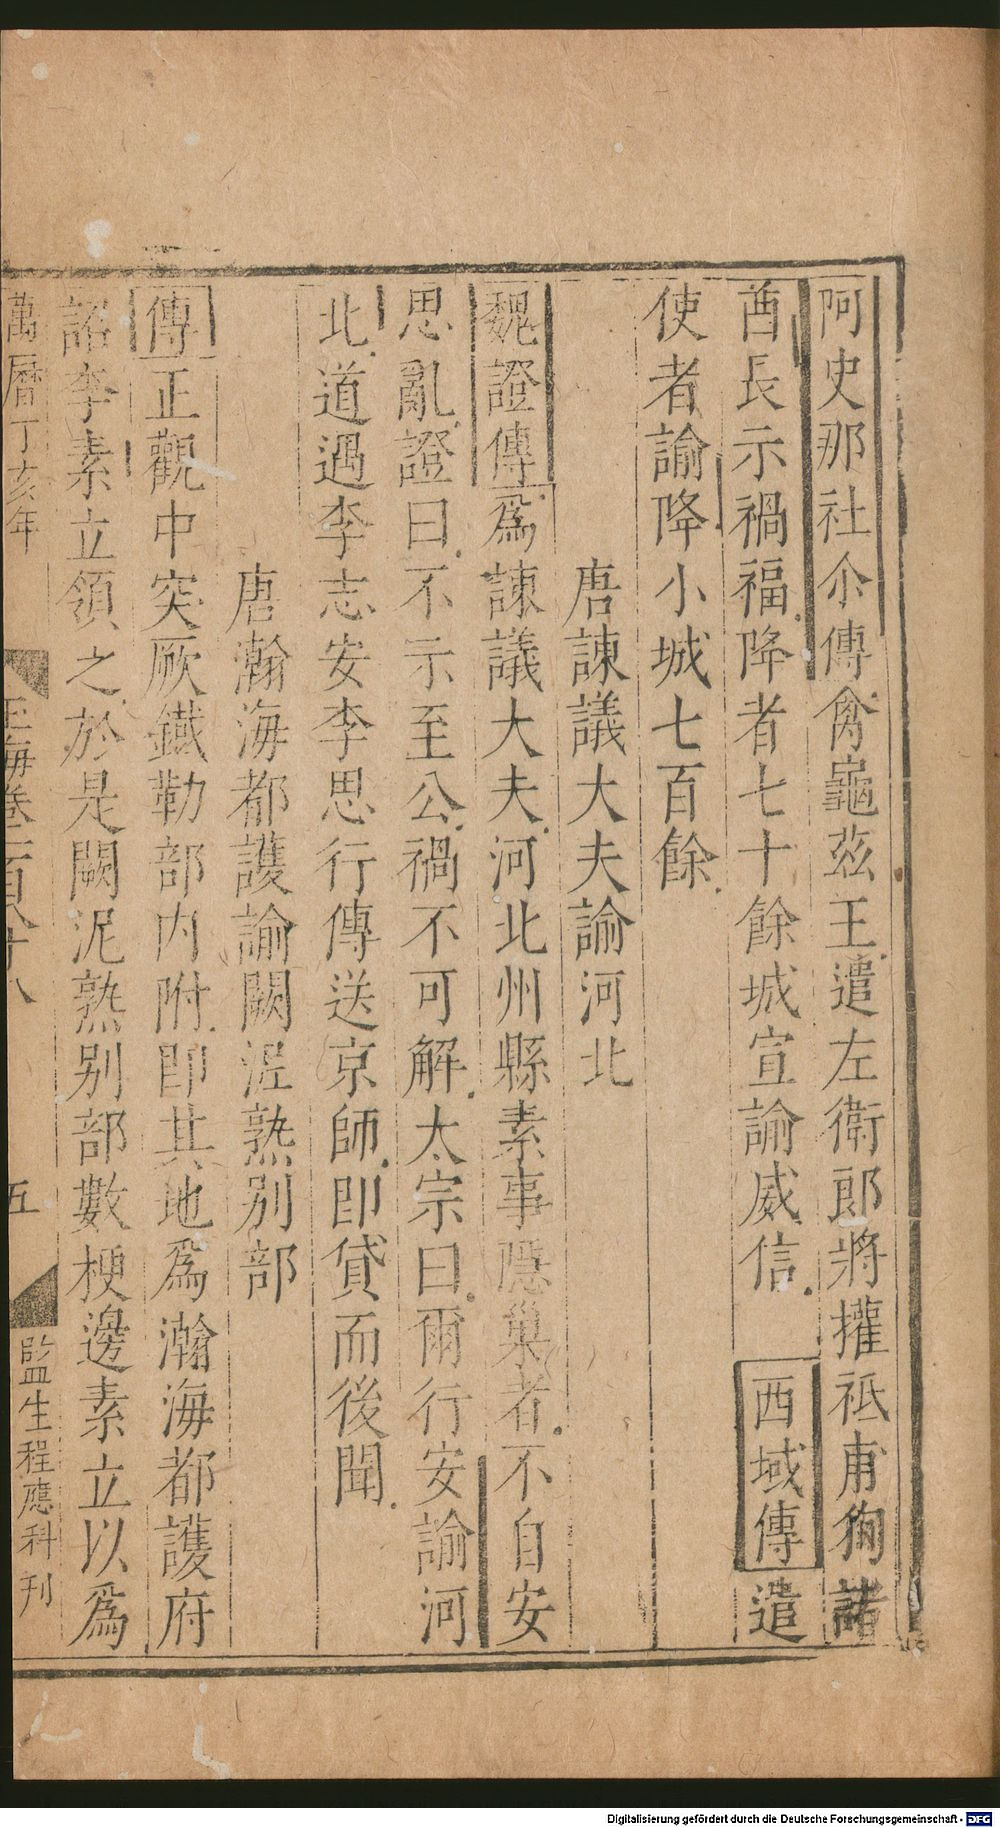 阿史那社尒傳禽龜茲王遣左衛郎將權祗甫徇諸
酋長示禍福降者七十餘城宣諭威信西域傳遣
使者諭降小城七百餘
唐諫議大夫諭河北
魏證傳爲諫議大夫河北州縣素事隱巢者不自安
思亂證曰不示至公禍不可解太宗曰爾行安諭河
北道遇李志安李思行傳送京師即貸而後聞
唐瀚海都護諭闕泥熟别部
傳正觀中突厥鐵勒部内附即其地爲瀚海都護府
詔李素立領之於是闕泥熟别部數梗邊素立以爲
萬曆丁亥年 玉海卷一百八十八 五 監生程應科刊
Digitalisierung gefördert durch die Deutsche Forschungsgemeinschaft - DFG